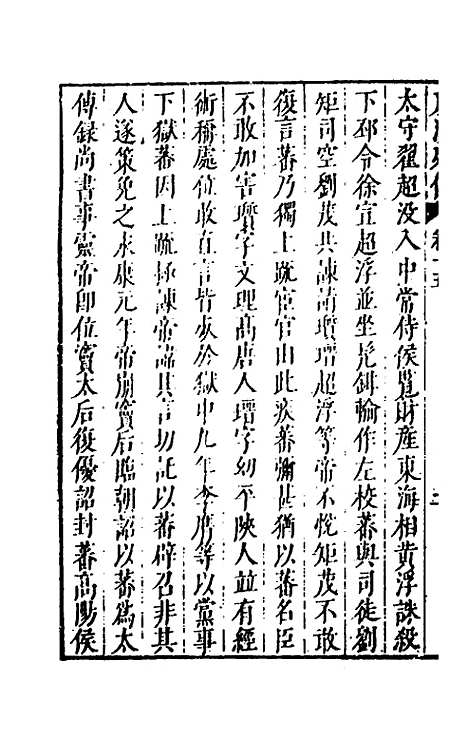 太守翟超没入中常侍侯覽財産東海相黃浮誅殺
下邳令徐宣超浮並坐髠鉗輸作左校蕃與司徒劉
矩司空劉茂共諫請瓆瑨超浮等帝不悅矩茂不敢
復言蕃乃獨上疏宦官由此疾蕃彌甚猶以蕃名臣
不敢加害瓆字文理高唐人瑨字幼平陝人並有經
術稱處位敢直言皆死於獄中九年李膺等以黨事
下獄蕃因上疏極諫帝諱其言切託以蕃辟召非其
人遂策免之永康元年帝崩竇后臨朝詔以蕃爲太
傅録尚書事靈帝即位竇太后復優詔封蕃高陽侯